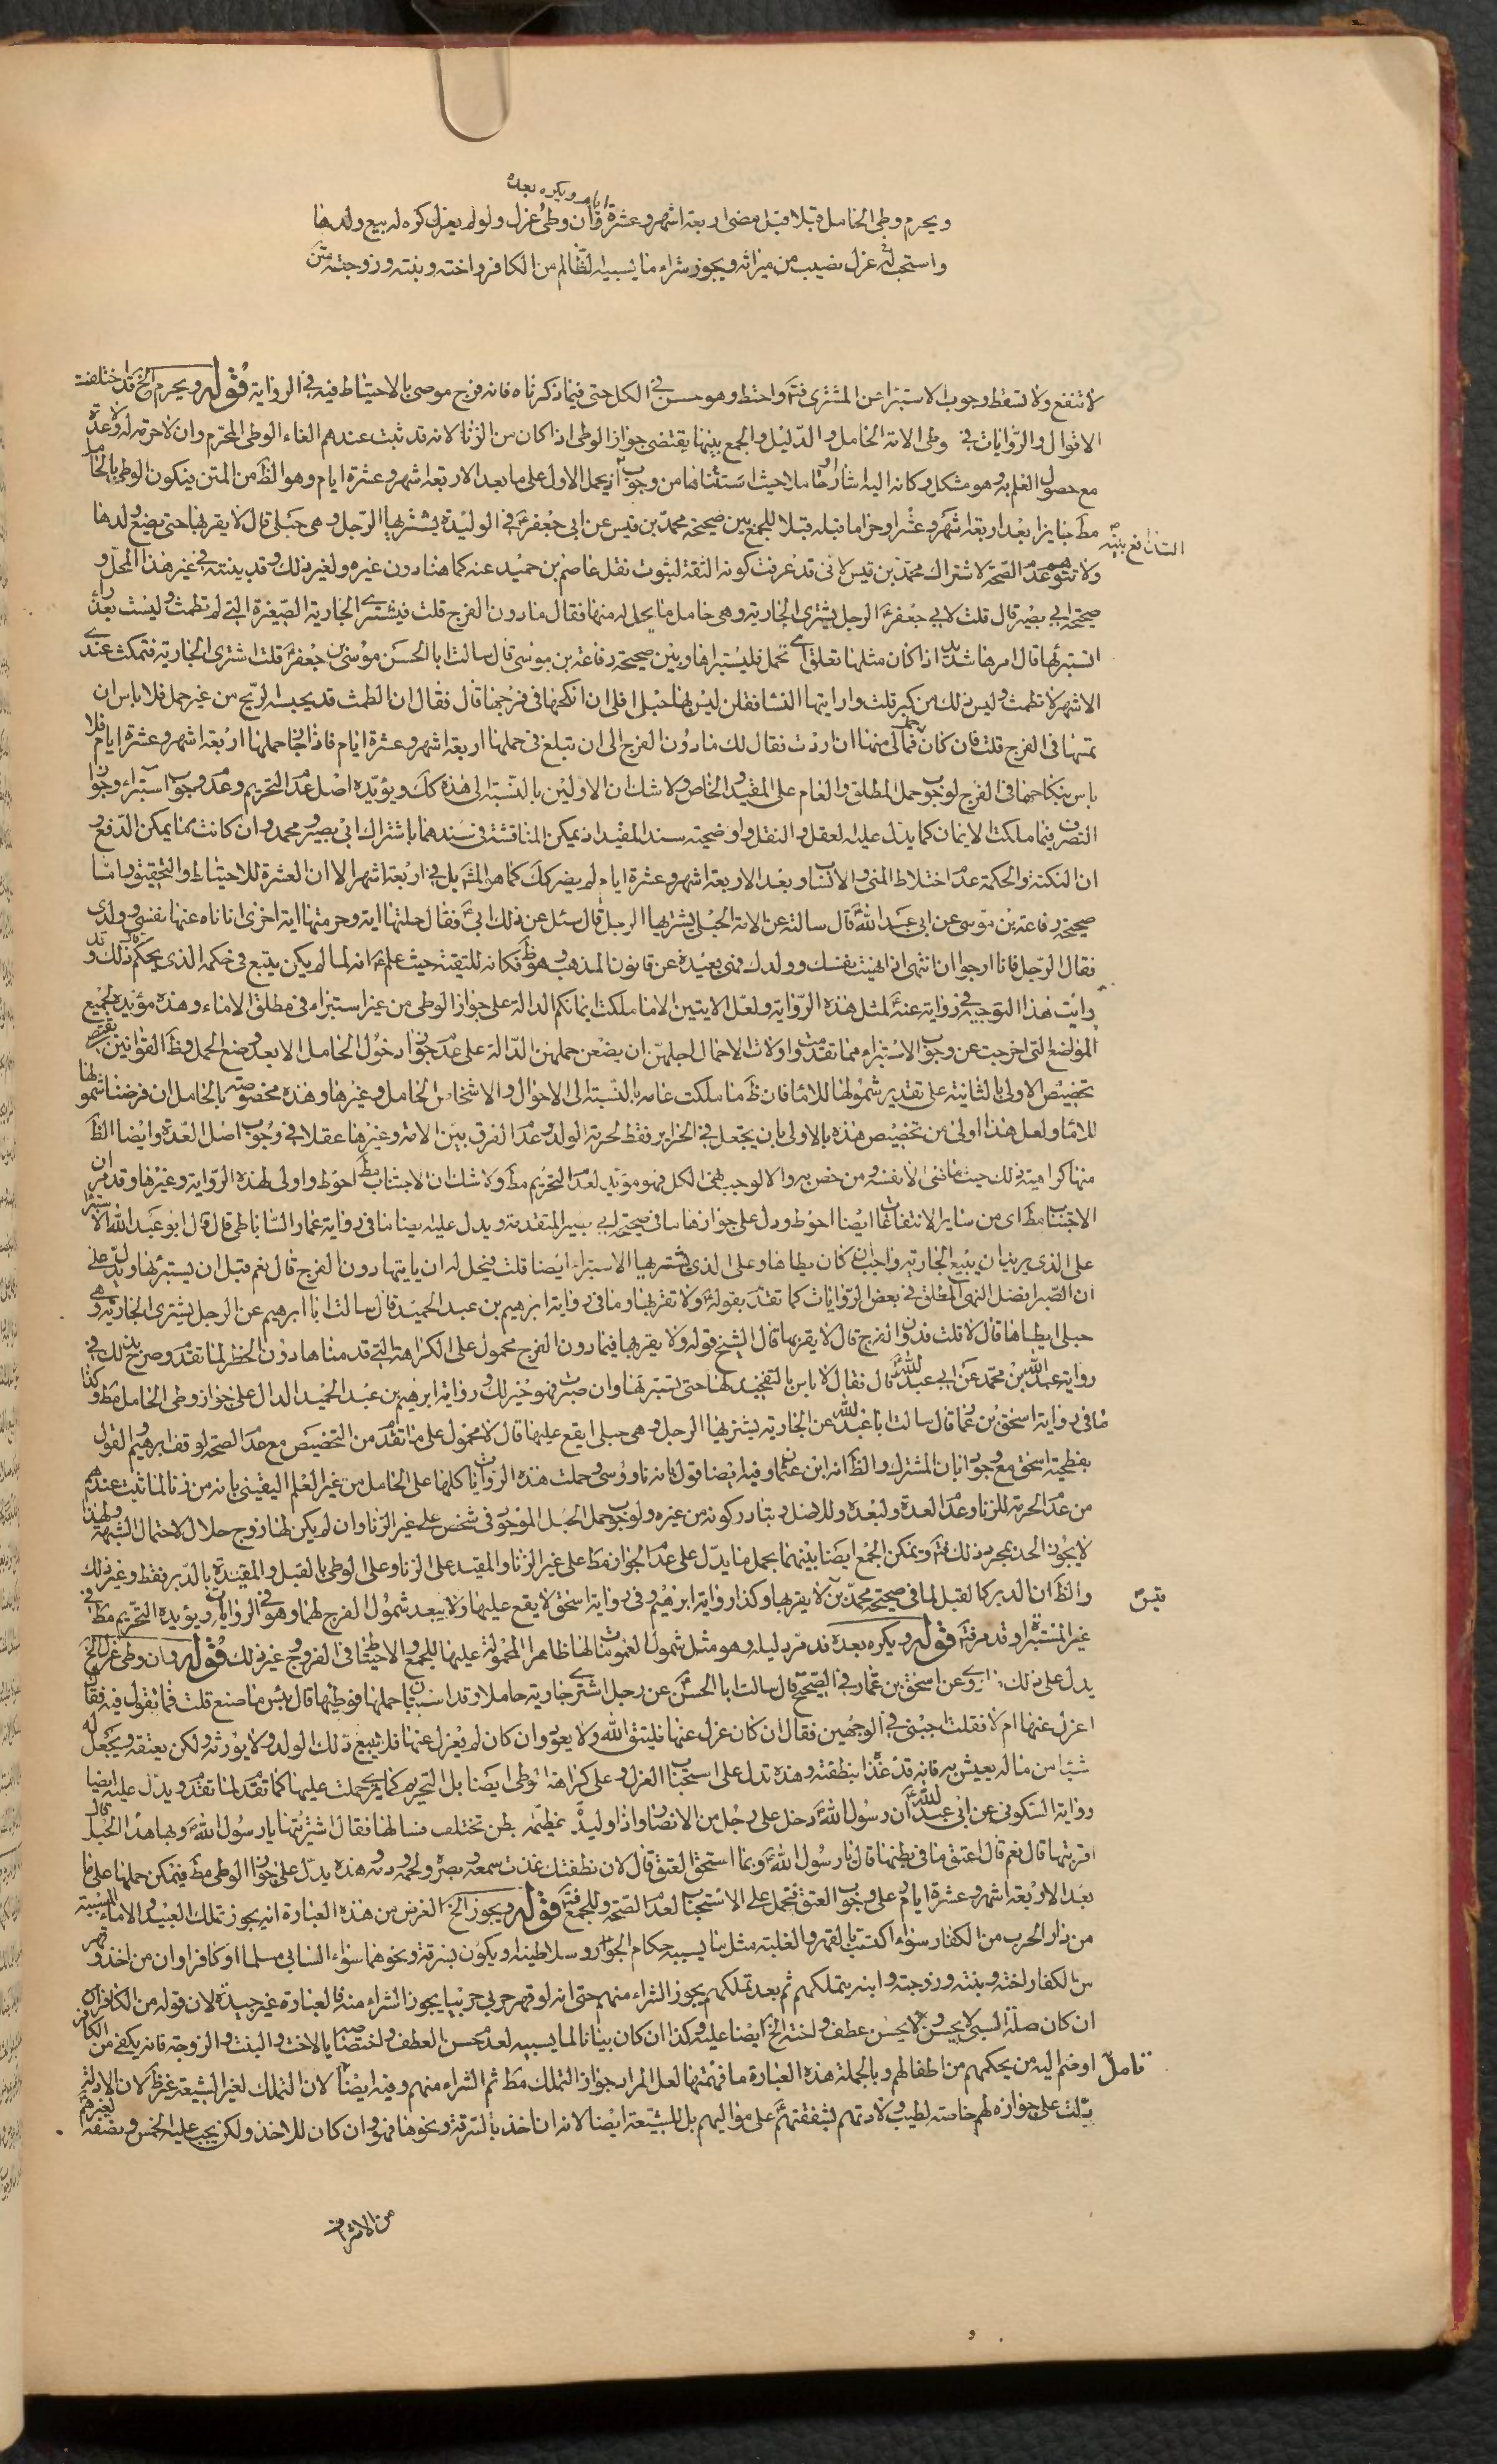 ايام ويكره بعده
ويحرم وطى الحامل قبلا قبل مضى اربعة اشهر وعشرة فان وطئ عزل ولو لم يعزل كره له بيع ولدها
واستحب له عزل نصيب من ميراثه ويجوز شراء ما يسبيه الظالم من الكافر واخته وبنته وزوجته متن
لا تنفع ولا تسقط وجوب الاستبراء عن المشترى فت‍ واحتط وهو حسن فى الكل حتى فيما ذكرناه فانه فرج موصى بالاحتياط فيه فى الرواية قوله ويحرم الخ قد اختلفت
الاقوال والروايات فى وطى الامة الحامل والدليل والجمع بينهما يقتضى جواز الوطى اذا كان من الزنا لانه قد ثبت عندهم الغاء الوطى المحرم وان لا حرمة له ولا عدة
مع حصول العلم به وهو مشكل وكانه اليه اشار حيث استثناها من وجوب او يحمل الاول على ما بعد الاربعة اشهر وعشرة ايام وهو الظ من المتن فيكون الوطى بالحامل
مط جايزا بعد اربعة اشهر وعشرا وحراما قبله قبلا للجمع بين صحيحة محمد بن قيس عن ابى جعفر ع فى الوليدة يشتريها الرجل وهى حبلى قال لا يقربها حتى يضع ولدها
ولا تتوهم عدم الصحة لاشتراك محمد بن قيس لانى قد عرفت كونه الثقة لثبوت نقل عاصم بن حميد عنه كما هنا دون غيره ولغير ذلك وقد بينته فى غير هذا المحل و
صحيحة ابى بصير قال قلت لابى جعفر ع الرجل يشترى الجارية وهى حامل ما يحل له منها فقال ما دون الفرج قلت فيشترى الجارية الصغيرة التى لم تطمث وليست بعذراء
ايستبرئها قال امرها شديد اذا كان مثلها تعلق اى تحمل فليستبراها وبين صحيحة رفاعة بن موسى قال سالت ابا الحسن موسى بن جعفر ع قلت اشترى الجارية فتمكث عندى
الاشهر لا تطمث وليس ذلك من كبر قلت واريتها النسا فقلن ليس بها حبل افلى ان انكحها فى فرجها قال فقال ان الطمث قد يحبسه الريح من غير حمل فلا باس ان
تمسها فى الفرج قلت فان كان حمل فما لى منها ان اردت فقال لك ما دون الفرج الى ان تبلغ فى حملها اربعة اشهر وعشرة ايام فاذا جاز حملها اربعة اشهر وعشرة ايام فلا
باس بنكاحها فى الفرج لوجوب حمل المطلق والعام على المقيد والخاص ولا شك ان الاولين بالنسبة الى هذه كك ويؤيده اصل عدم التحريم وعدم وجوب استبراء وجواز
التصرف فيما ملكت الايمان كما يدل عليه العقل والنقل واوضحية سند المقيد اذ يمكن المناقشة فى سندهما باشتراك ابى بصير ومحمد وان كانت مما يمكن الدفع و
ان النكتة والحكمة عدم اختلاط المنى والانساب وبعد الاربعة اشهر وعشرة ايام لم يضر كك كما هو المشهور بل فى اربعة اشهر الا ان العشرة للاحتياط والتحقيق واما
صحيحة رفاعة بن موسى عن ابى عبد الله ع قال سالته عن الامة الحبلى يشتريها الرجل قال سئل عن ذلك ابى ع فقال احلتها اية وحرمتها اية اخرى انا ناه عنها نفسى وولدى
فقال الرجل فانا ارجو ان انتهى اذا نهيت نفسك وولدك فهى بعيدة عن قانون المذهب وهو ظ فكانه للتقية حيث علم ع انه لما لم يكن يتبع فى حكمه الذى يحكم ذلك وقد
رايت هذا التوجيه فى رواية عنه ع لمثل هذه الرواية ولعل الايتين الا ما ملكت ايمانكم الدالة على جواز الوطى من غير استبراء فى مطلق الاماء وهذه مؤيدة لجميع
المواضع التى اخرجت عن وجوب الاستبراء مما تقدمت واولات الاحمال اجلهن ان يضعن حملهن الدالة على عدم جواز دخول الحامل الا بعد وضع الحمل وظ القوانين يقتضى
تخصيص الاولى بالثانية على تقدير شمولها للاماء فان ظ ما ملكت عامه بالنسبة الى الاحوال والاشخاص الحامل وغيرها وهذه مخصوصة بالحامل ان فرضنا شمولها
للاماء ولعل هذا اولى من تخصيص هذه بالاولى بان يجعل فى الحراير فقط لحرمة الولد وعدم الفرق بين الامة وغيرها عقلا فى وجوب اصل العدة وايضا الظ
منها كراهية ذلك حيث ما نهى الا نفسه ومن خص به والا لوجب نهى الكل فهو مؤيد لعدم التحريم مط ولا شك ان الاجتناب مط احوط واولى لهذه الرواية وغيرها وقد مر ان
الاجتناب مط اى من ساير الانتفاعات ايضا احوط ودل على جوازها ما فى صحيحة ابى بصير المتقدمة ويدل عليه ايضا ما فى رواية عمار الساباطى قال قال ابو عبد الله الاستبراء
على الذى يريد ان يبيع الجارية واجب ان كان يطاها وعلى الذى يشتريها الاستبراء ايضا قلت فيحل له ان ياتيها دون الفرج قال نعم قبل ان يستبرئها ويدل على
ان الصبر افضل النهى المطلق فى بعض الروايات كما تقدم بقوله ع ولا تقربها وما فى رواية ابرهيم بن عبد الحميد قال سالت ابا ابرهيم عن الرجل يشترى الجارية وهى
حبلى ايطاها قال لا قلت فدون الفرج قال لا يقربها قال الشيخ قوله ولا يقربها فيما دون الفرج محمول على الكراهة التى قدمناها دون الحظر لما تقدم وصرح بذلك فى
رواية عبد الله بن محمد عن ابى عبد الله ع قال فقال لا باس بالتفخيذ لها حتى تستبرئها وان صبرت فهو خير لك ورواية ابرهيم بن عبد الحميد الدال على جواز وطى الحامل مط وكذا
ما فى رواية اسحق بن عمار قال سالت ابا عبد الله عن الجارية يشتريها الرجل وهى حبلى ايقع عليها قال لا محمول على ما تقدم من التخصيص مع عدم الصحة لوقف ابرهيم والقول
بفطحية اسحق مع وجود ابان المشترك والظ انه ابن عثمان وفيه ايضا قول بانه ناووسى وحملت هذه الروايات كلها على الحامل من غير العلم اليقينى بانه من زنا لما ثبت عندهم
من عدم الحرمة للزنا وعدم العدة ولبعده وللاصل وتبادر كونه من غيره ولوجوب حمل الحبل الموجود فى شخص على غير الزنا وان لم يكن لها زوج حلال لاحتمال الشبهة ولهذا
لا يجوز الحد بمجرد ذلك فت‍ ويمكن الجمع ايضا بينهما بحمل ما يدل على عدم الجواز مط على غير الزنا والمقيد على الزنا وعلى الوطى بالقبل والمقيدة بالدبر فقط وغير ذلك
والظ ان الدبر كالقبل لما فى صحيحة محمد بن لا يقربها وكذا رواية ابرهيم وفى رواية اسحق لا يقع عليها ولا يبعد شمول الفرج لهما وهو فى الروايات ويؤيده التحريم مط فى
غير المستبرأة وقد مر فت‍ قوله ويكره بعده قد مر دليله وهو مثل شمول العمومات لها ظاهرا المحمولة عليها للجمع والاحتياط فى الفروج وغير ذلك قوله وان وطى عزل الخ
يدل على ذلك ما روى عن اسحق بن عمار فى الصحيح قال سالت ابا الحسن ع عن رجل اشترى جارية حاملا وقد استبان حملها فوطئها قال بئس ما صنع قلت فما تقول فيه فقال
اعزل عنها ام لا فقلت اجبنى فى الوجهين فقال ان كان عزل عنها فليتق الله ولا يعود وان كان لم يعزل عنها فلا يبيع ذلك الولد ولا يورثه ولكن يعتقه ويجعل له
شيئا من ماله يعيش به فانه قد غذاه بنطفته وهذه تدل على استحباب العزل وعلى كراهة الوطى ايضا بل التحريم حملت عليها كما تقدم لما تقدم ويدل عليه ايضا
رواية السكونى عن ابى عبد الله ع ان رسول الله ص دخل على رجل من الانصار واذا وليدة عظيمة بطن تختلف فسال عنها فقال اشتريتها يا رسول الله ص وبها هذا الحبل قال
اقربتها قال نعم قال اعتق ما فى بطنها قال يا رسول الله ص وبما استحق العتق قال لان نطفتك غذت سمعه وبصره ولحمه ودمه هذه يدل على جواز الوطى مط فيمكن حملها على ما
بعد الاربعة اشهر وعشرة ايام وعلى وجوب العتق فيحمل على الاستحباب لعدم الصحة وللجمع فت‍ قوله ويجوز الخ الغرض من هذه العبارة انه يجوز تملك العبيد والاماء المسبية
من دار الحرب من الكفار سواء اكتسبت بالقهر والغلبة مثل ما يسبيه حكام الجور وسلاطينه او يكون بسرقة ونحوهما سواء السابى مسلما او كافرا وان من اخذ وقهر
من الكفار اخته وبنته وزوجته وابنه يتملكهم ثم بعد تملكهم يجوز الشراء منهم حتى انه لو قهر حربى حربيا يجوز الشراء منه فالعبارة غير جيدة لان قوله من الكافر
ان كان صلة السبى لا يحسن ولا يحسن عطف واخته الخ ايضا عليه وكذا ان كان بيانا لما يسبيه لعدم حسن العطف ولاختصاصه بالاخت والبنت والزوجة فانه يكفى من الكافر
اوضم اليه من يحكمهم من اطفالهم وبالجملة هذه العبارة ما فهمتها لعل المراد جواز التملك مط ثم الشراء منهم وفيه ايضا تامل لان التملك لغير الشيعة غير ظ لان الادلة
دلت على جوازه لهم خاصة لطيب ولادتهم لشفقتهم ع على مواليهم بل للشيعة ايضا لانه ان اخذ بالسرقة ونحوها فهو وان كان للاخذ ولكن يجب عليه الخمس ومصرفه لغيرهم
من الاشراف